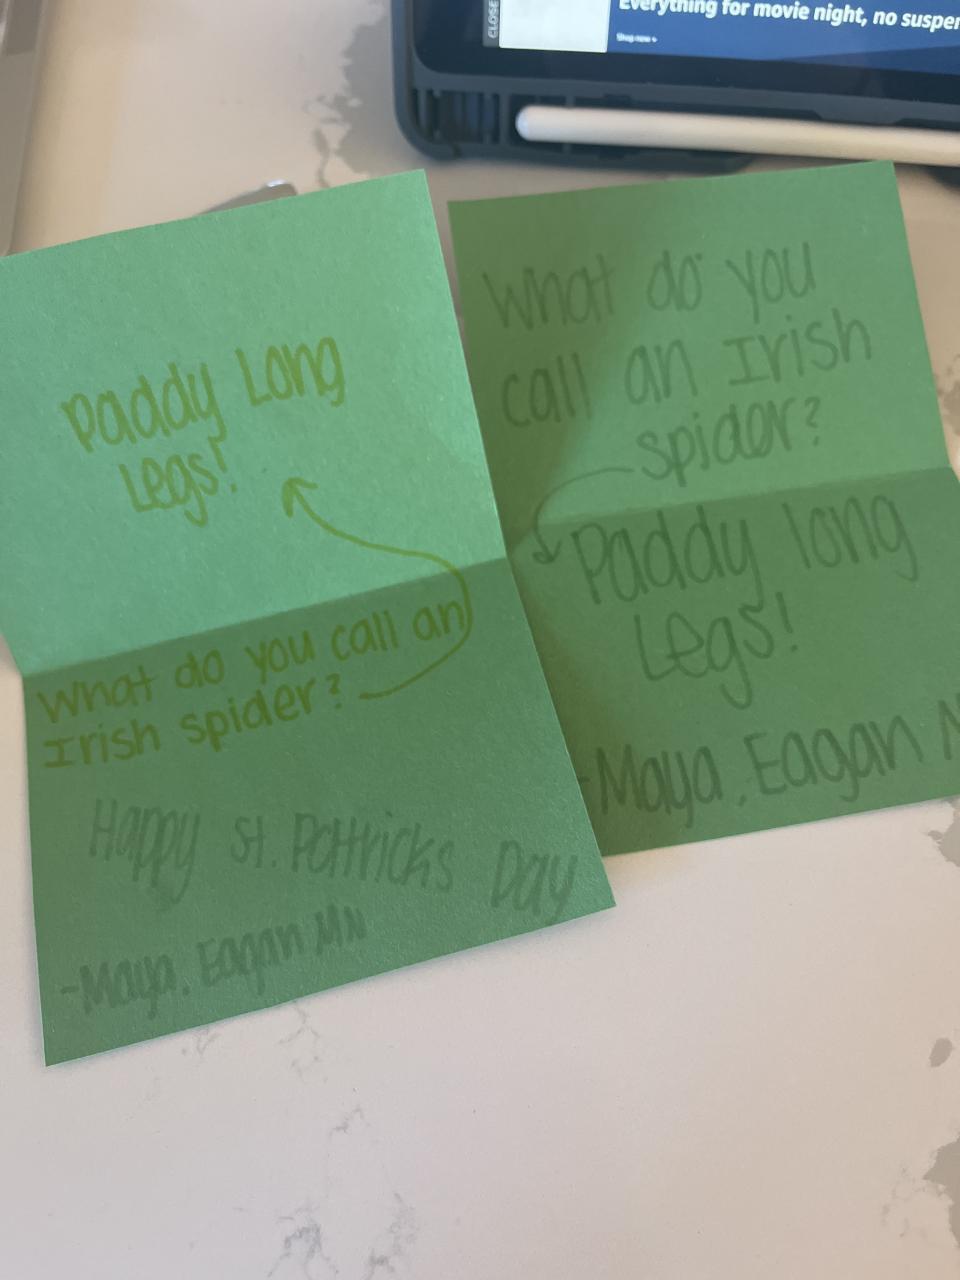 CLOSE
Everything for movie night, no suspen
Shop now
Paddy Long
Legs!
What do you call an
Irish spider?
Happy St. Pattricks Day
-Maya. Eagan MN
What do you
call an Irish
spider?
Paddy long
Legs!
-Maya. Eagan M